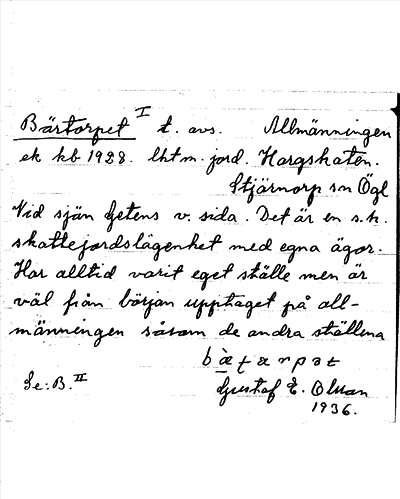 Bärtorpet I t. avs. Allmänningen
ek kb 1928. lht m. jord. Hargskaten.
Stjärnorp sn Ögl
Vid sjän Getens v. sida. Det är en s.k.
skattejordslägenhet med egna ägor.
Har alltid varit eget ställe men är
väl från början upptaget på all-
männingen såsom de andra ställena
Se: B. II Gustaf E. Olsson
1936.